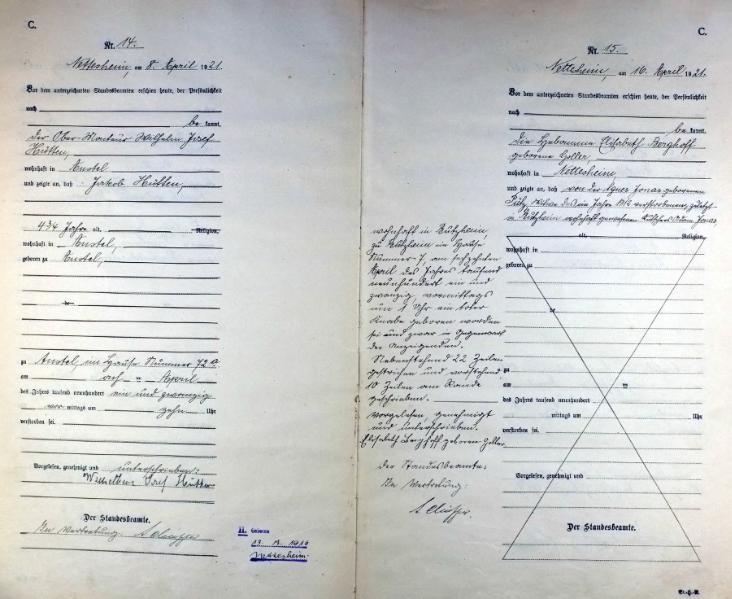 C.
Nr. 14.
Nettesheim, am 8. April 1921.
Vor dem unterzeichneten Standesbeamten erschien heute, der Persönlichkeit
nach
be kannt,
der Ober-Monteur Wilhelm Josef
Hütten,
wohnhaft in Anstel
und zeigte an, daß Jakob Hütten,
4 3/4 Jahre alt, Religion,
wohnhaft in Anstel,
geboren zu Anstel,
zu Anstel, im Hause Nummer 72a
am acht ten April
des Jahres tausend neunhundert ein und zwanzig
vor mittags um zehn Uhr
verstorben sei.
Vorgelesen, genehmigt und unterschrieben:
Wilhelm Josef Hütten
Der Standesbeamte.
In Vertretung:
H. Geboren
1916
Nettesheim
C.
Nr. 15.
Nettesheim, am 16. April 1921.
Vor dem unterzeichneten Standesbeamten erschien heute, der Persönlichkeit
nach
be kannt,
die Hebamme Elisabeth Berghoff
geborene Goller,
wohnhaft in Nettesheim
und zeigte an, daß von der Agnes Jonas geborenen
Witwe des im Jahre verstorbenen, zuletzt
in Butzheim wohnhaft gewesenen Adam Jonas,
alt, Religion,
wohnhaft in
geboren zu
zu
am ten
des Jahres tausend neunhundert
mittags um Uhr
verstorben sei.
Vorgelesen, genehmigt und
Der Standesbeamte.
wohnhaft in Butzheim,
zu Butzheim im Hause
Nummer 7, am sechzehnten
April des Jahres tausend
neunhundert ein und
zwanzig vormittags
um 1 Uhr ein toter
Knabe geboren worden
sei und zwar in Gegenwart
der Anzeigenden.
Nebenstehend 22 Zeilen
gestrichen und vorstehend
10 Zeilen am Rande
geschrieben.
Vorgelesen, genehmigt
und unterschrieben.
Elisabeth Berghoff geboren Goller
Der Standesbeamte:
In Vertretung: